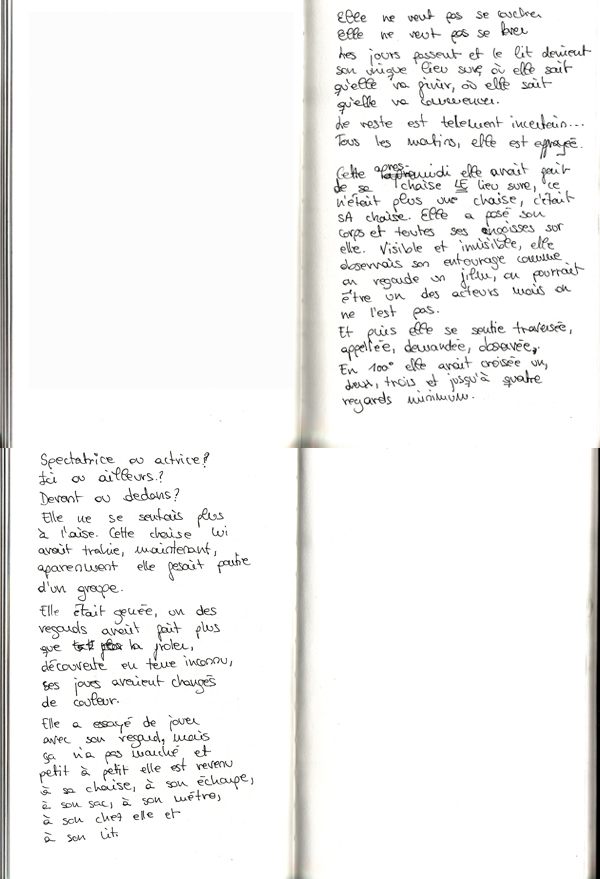 Elle ne veut pas se coucher
Elle ne veut pas se lever
Les jours passent et le lit devient
son unique lieu sure, où elle sait
qu'elle va finir, où elle sait
qu'elle va commencer.
Le reste est telement incertain...
Tous les matins, elle est effrayée.
Cette apres midi elle avait fait
de sa chaise LE lieu sure, ce
n'était plus une chaise, c'était
SA chaise. Elle a posé son
corps et toutes ses angoisses sur
elle. Visible et invisible, elle
observais son entourage comme
on regarde un film, on pourrait
être un des acteurs mais on
ne l'est pas.
Et puis elle se sentie traversée,
appellée, demandée, observée,.
En 100° elle avait croisée un,
deux, trois et jusqu'à quatre
regards minimum.
Spectatrice ou actrice?
Ici ou ailleurs?
Devant ou dedans?
Elle ne se sentais plus
à l'aise. Cette chaise lui
avait trahie, maintenant,
aparenment elle fesait partie
d'un groupe.
Elle était genée, un des
regards avait fait plus
que la froler,
découverte en terre inconnu,
ses joues avaient changés
de couleur.
Elle a essayé de jouer
avec son regard, mais
ça n'a pas marché et
petit à petit elle est revenu
à sa chaise, à son écharpe,
à son sac, à son métro,
à son chez elle et
à son lit.